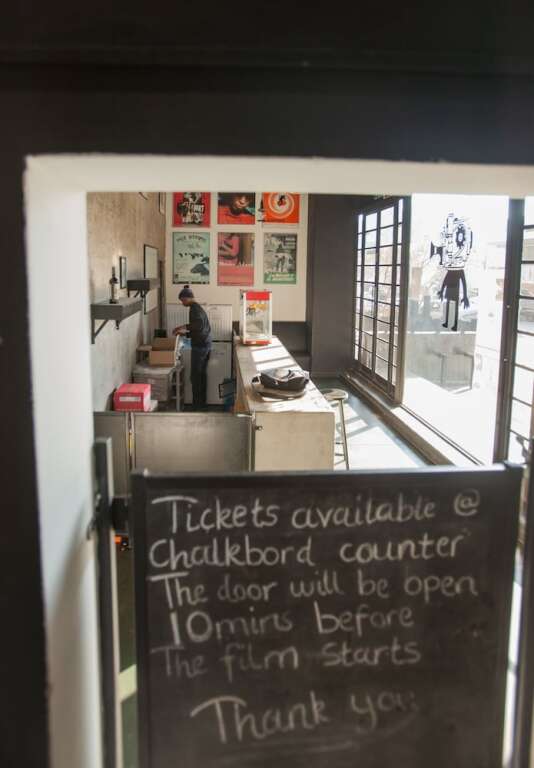 Tickets available @
Chalkbord counter
The door will be open
10mins before
The film starts
Thank you